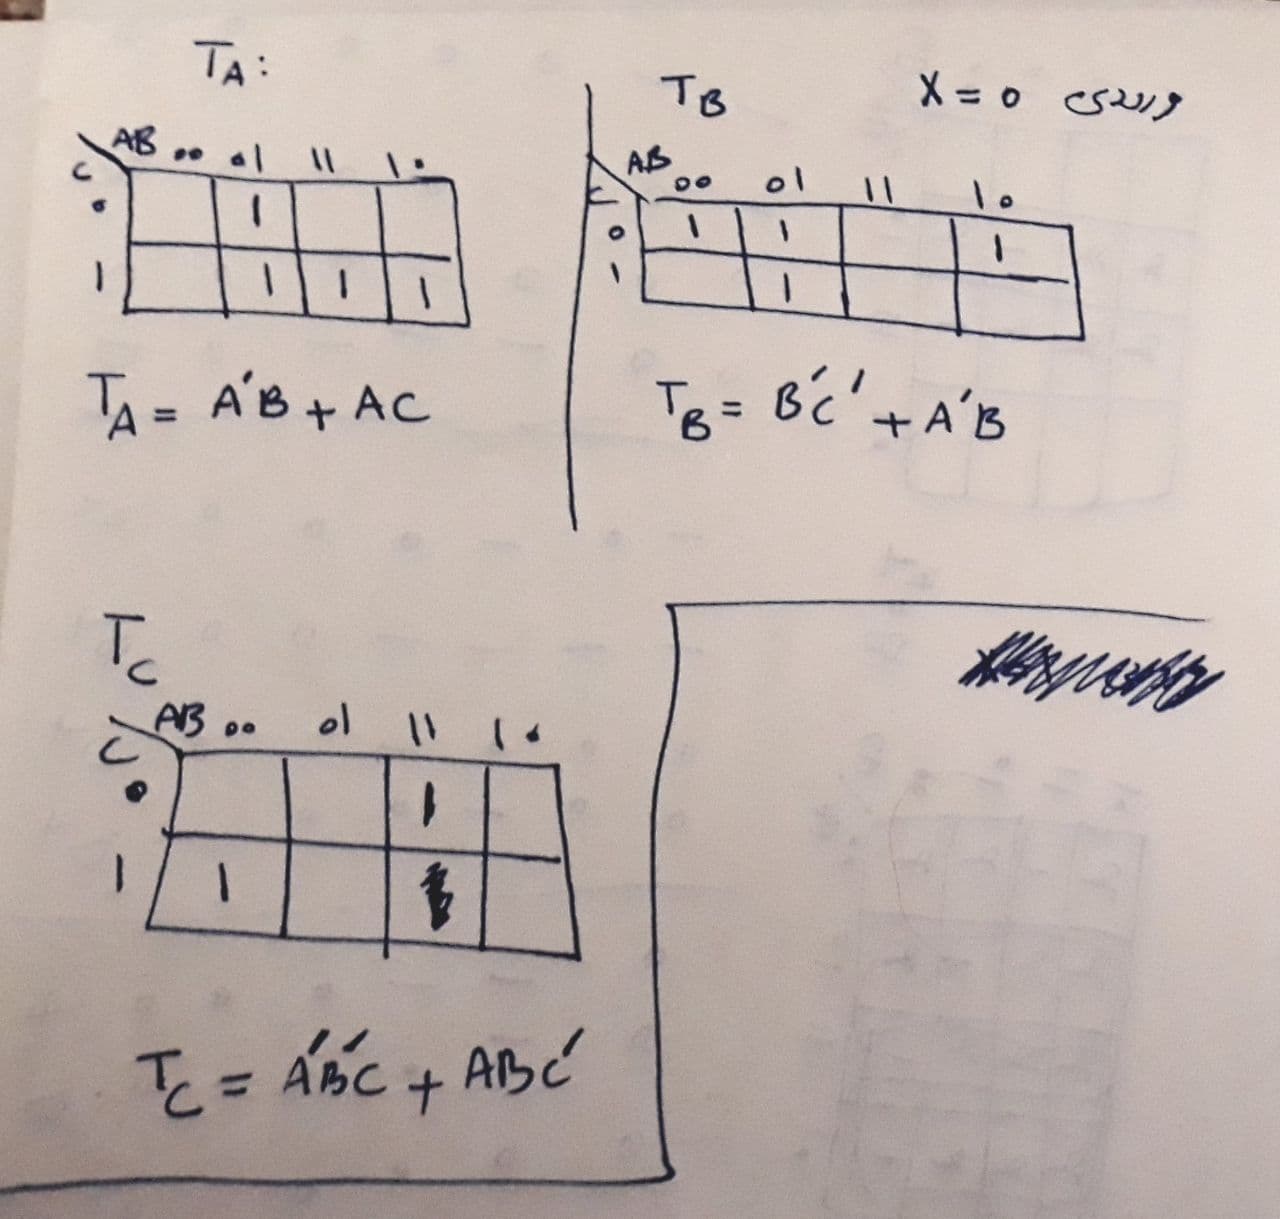 TA:
AB 00 01 11 10
C
0 1
1 1 1 1
TA = A'B + AC
TB X = 0 ورودی
AB 00 01 11 10
C
0 1 1 1
1 1
TB = B'C' + A'B
TC
AB 00 01 11 10
C
0 1
1 1
TC = A'B'C + ABC'